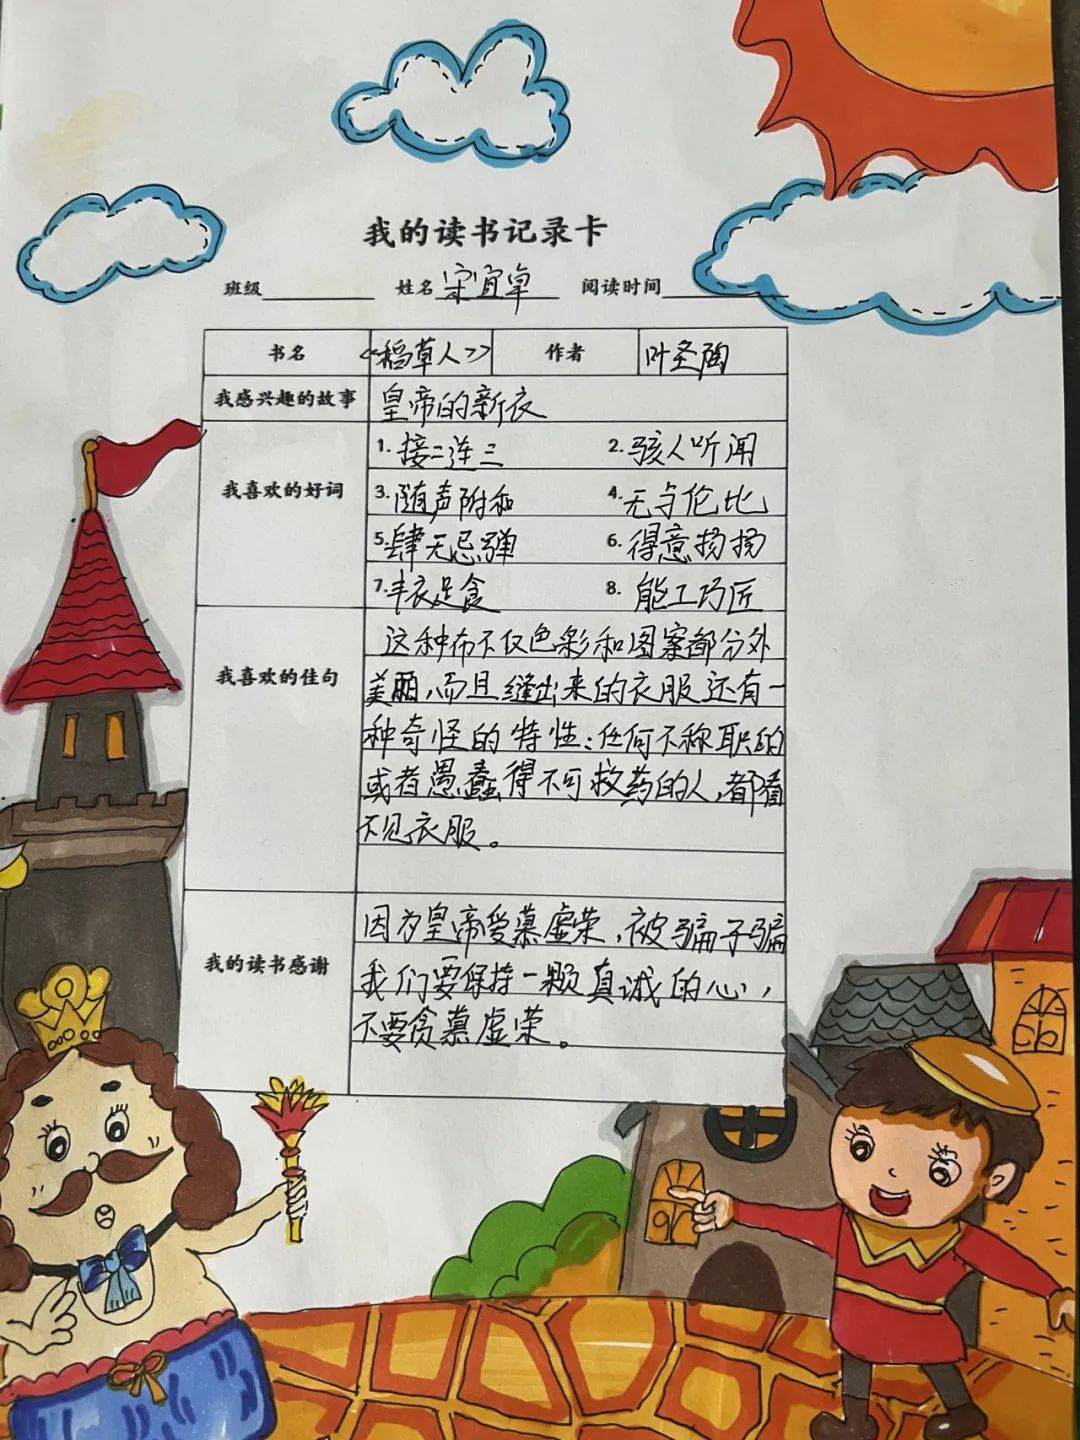 我的读书记录卡
班级 姓名 宋宜卓 阅读时间
书名 《稻草人》 作者 叶圣陶
我感兴趣的故事 皇帝的新衣
1.接二连三 2.骇人听闻
我喜欢的好词
3.随声附和 4.无与伦比
5.肆无忌弹 6.得意扬扬
7.丰衣足食 8.能工巧匠
这种布不仅色彩和图案都分外
我喜欢的佳句
美丽,而且缝出来的衣服还有一
种奇怪的特性:任何不称职的
或者愚蠢得不可救药的人,都看
不见衣服。
因为皇帝爱慕虚荣,被骗子骗
我的读书感谢
我们要保持一颗真诚的心,
不要贪慕虚荣。